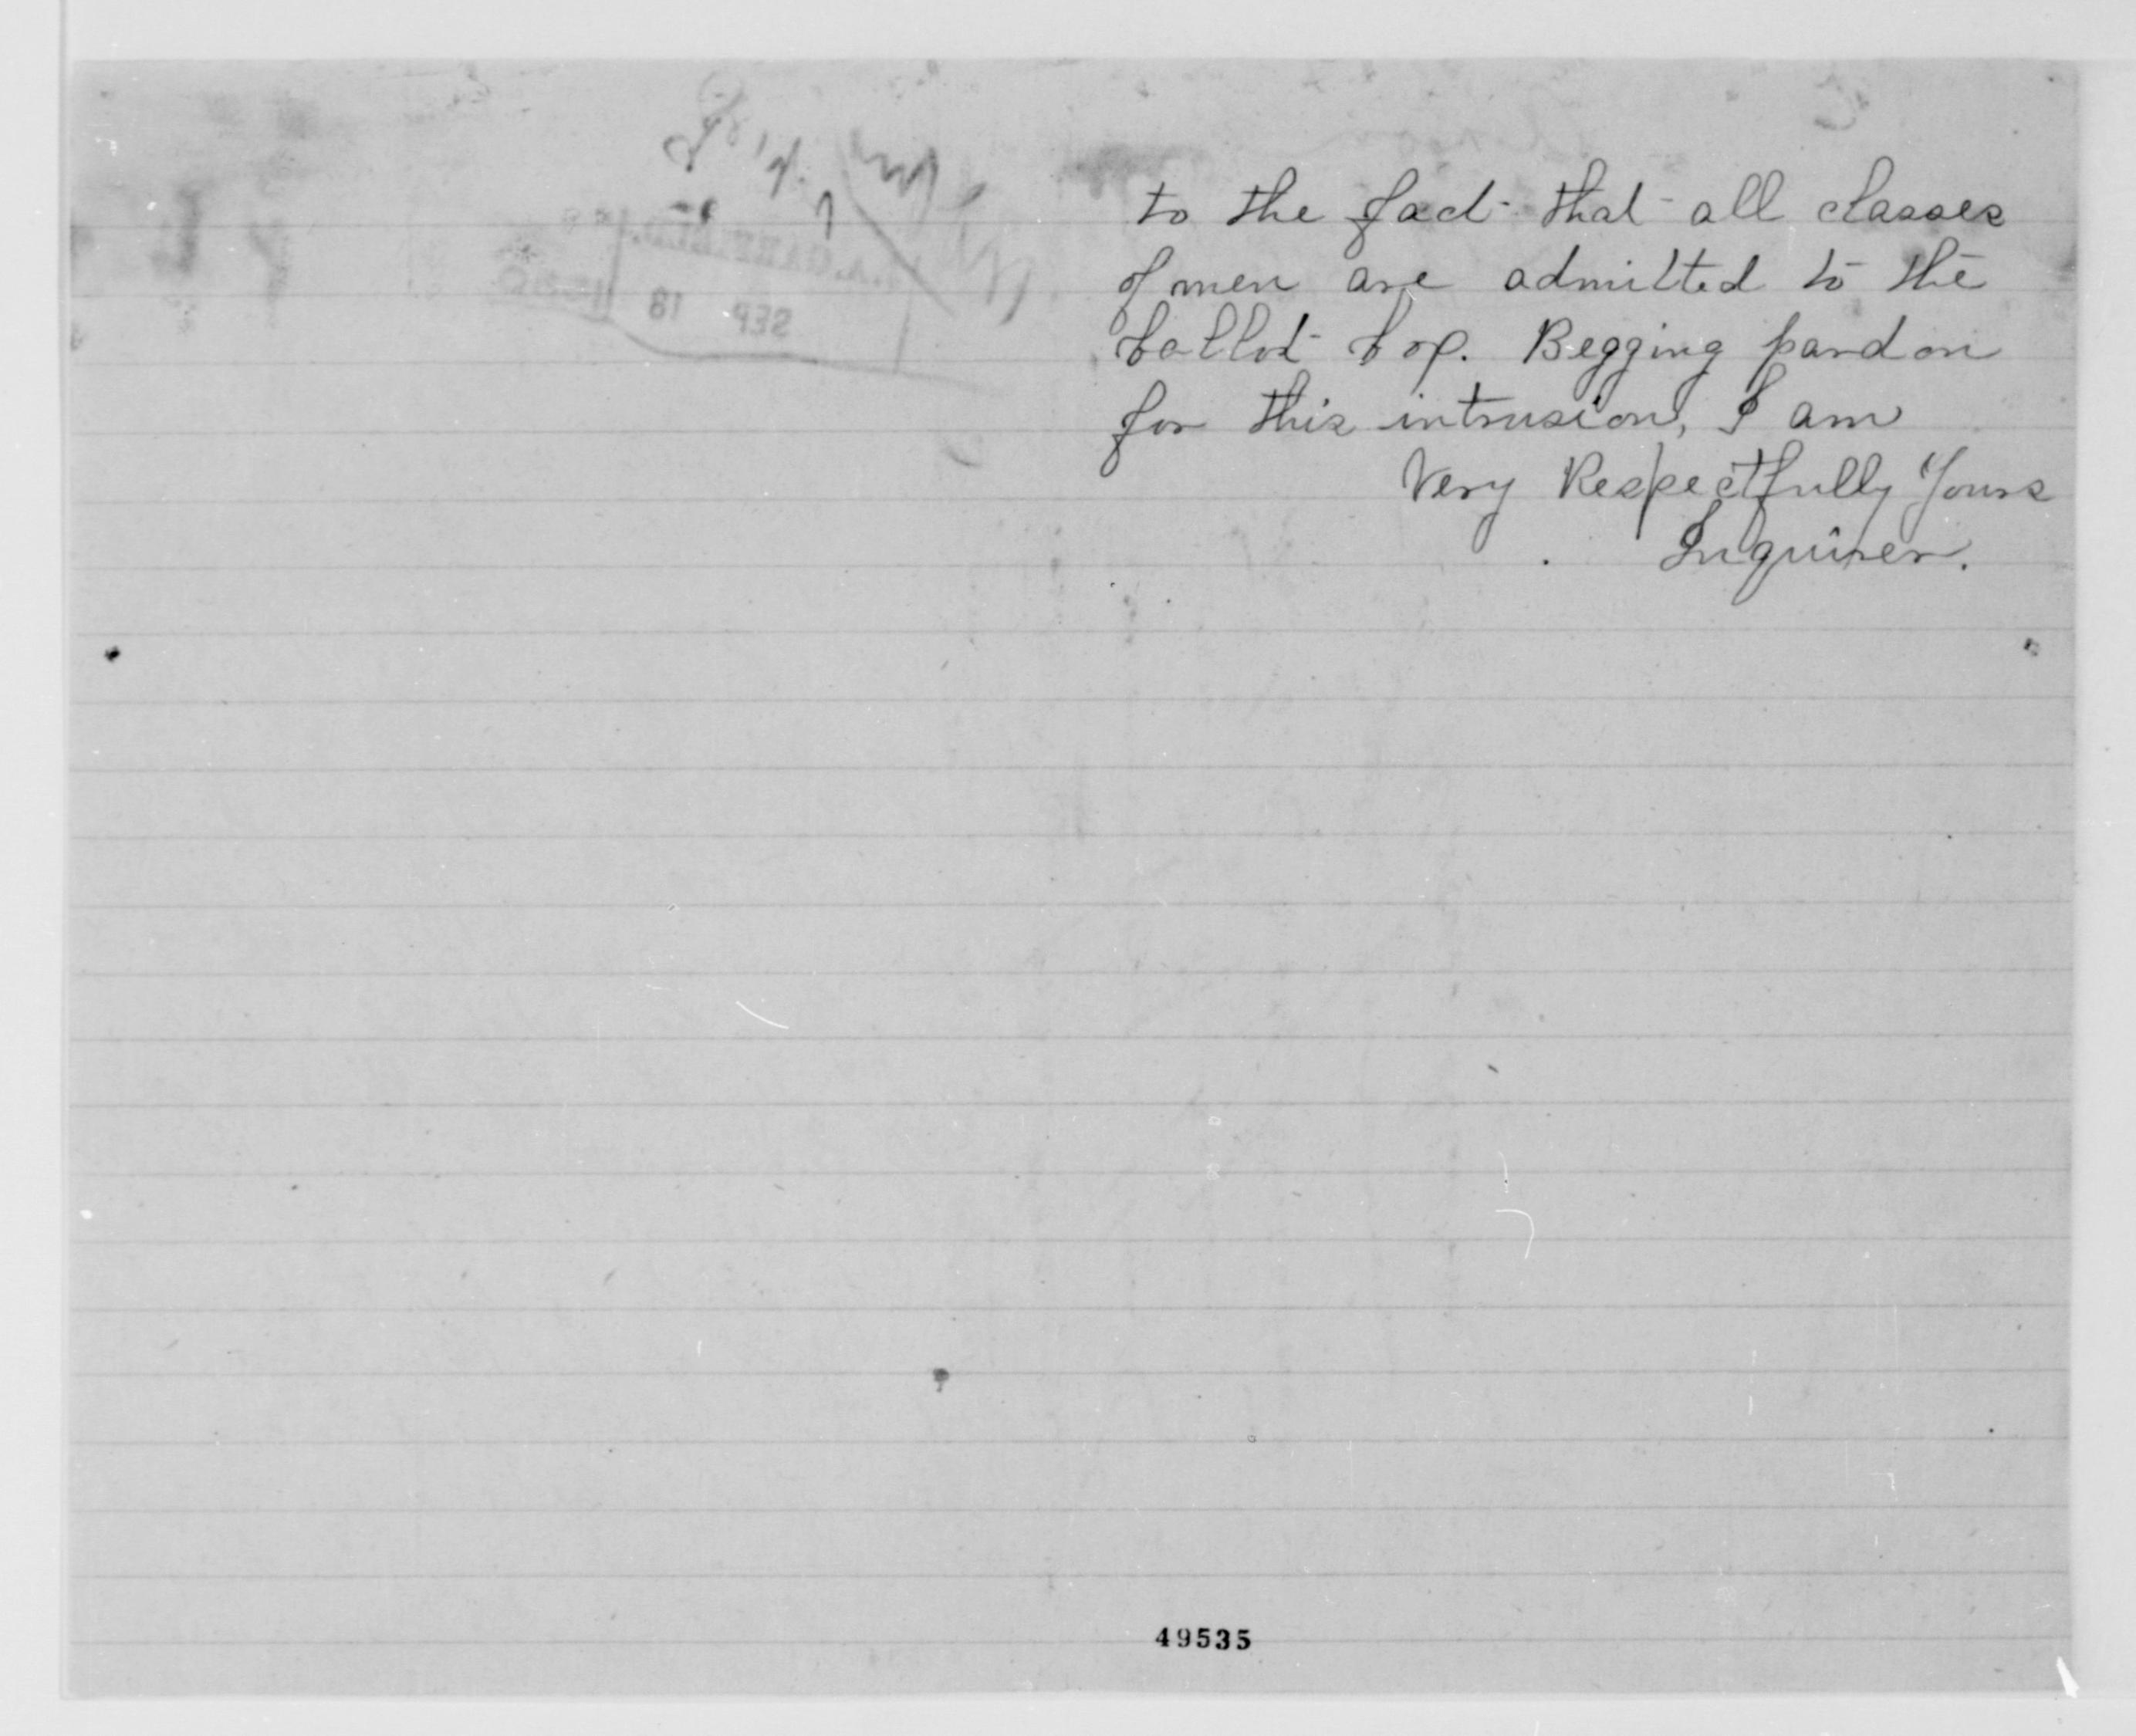 to the fact that all classes
of men are admitted to the
ballot box. Begging pardon
for this intrusion, I am
Very Respectfully Yours
Inquirer.
J. A. GARFIELD.
SEP 18
49535